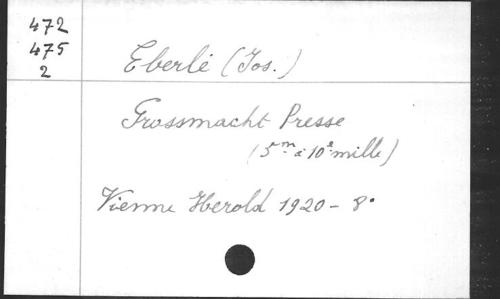 472
475
2
Eberlé (Jos.)
Grossmacht Presse
(5m à 10e mille)
Vienne Herold 1920 - 8°